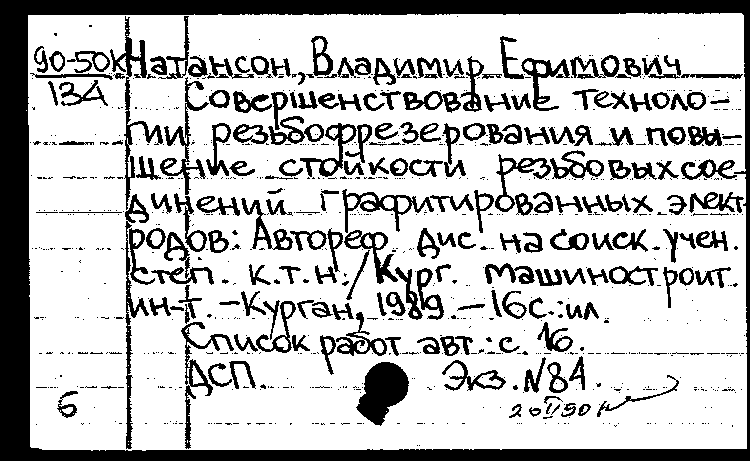 90-50К Натансон, Владимир Ефимович
134 Совершенствование техноло-
гии резьбофрезерования и повы-
шение стойкости резьбовых сое-
динений графитированных элект-
родов: Автореф. дис. на соиск. учен.
степ. к.т.н. / Кург. машиностроит.
ин-т. – Курган, 1989. – 16с.: ил.
Список работ авт.: с. 16.
ДСП. Экз. №84.
6